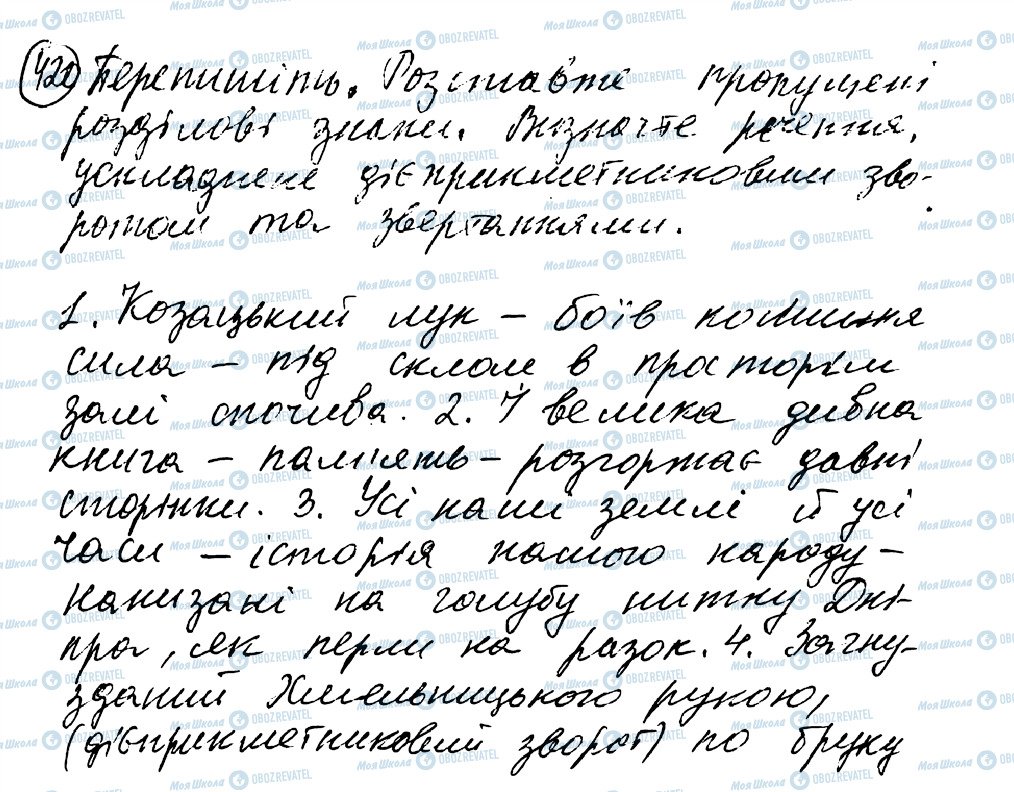 420 Перепишіть. Розставте пропущені
розділові знаки. Визначте речення,
ускладнене дієприкметниковим зво-
ротом та звертаннями.
1. Козацький лук – боїв колишня
сила – під склом в просторім
залі спочива. 2. І велика дивна
книга – пам'ять – розгортає давні
сторінки. 3. Усі наші землі й усі
часи – історія нашого народу –
нанизані на голубу нитку Дні-
пра, як перли на разок. 4. Загну-
зданий Хмельницького рукою,
(дієприкметниковий зворот) по бруку